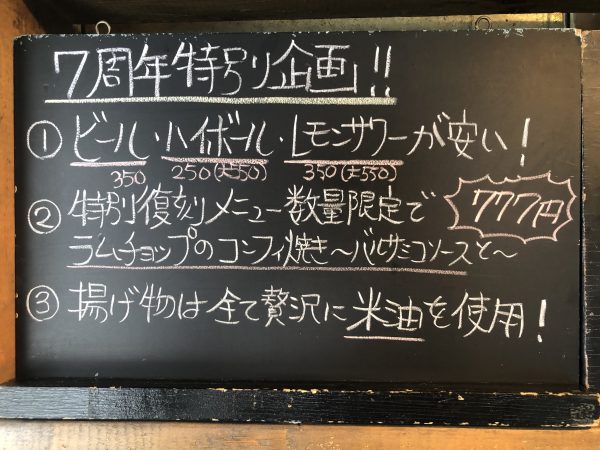 7周年特別企画!!
① ビール・ハイボール・レモンサワーが安い!
350 250(大550) 350(大550)
② 特別復刻メニュー数量限定で 777円
ラムチョップのコンフィ焼き〜バルサミコソースと〜
③ 揚げ物は全て贅沢に米油を使用!